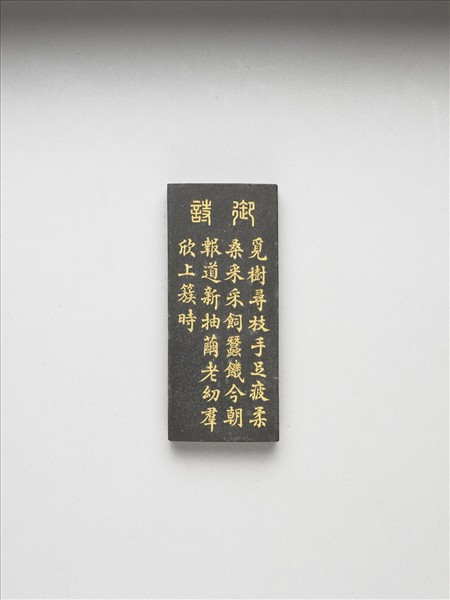 御詩
覓樹尋枝手足疲柔
桑采采飼蠶饑今朝
報道新抽繭老幼羣
欣上簇時